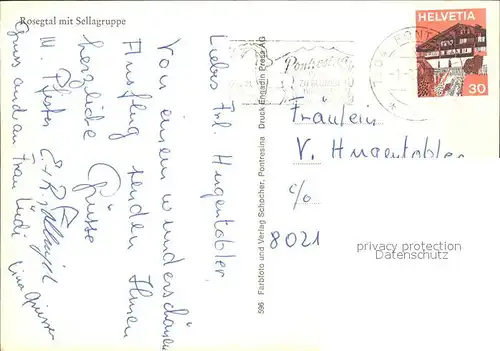 Rosegtal mit Sellagruppe
Liebes Frl. Hugentobler,
Von einem wunderschönen
Ausflug senden Ihnen
herzliche Grüsse
M Pfister
Gruss auch an Frau Lüdi
Lina
596 Farbfoto und Verlag Schocher, Pontresina Druck Engadin Press AG
Pontresina
HELVETIA
30
Fräulein
V. Hugentobler
c/o
8021
privacy protection
Datenschutz